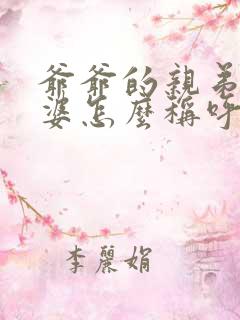 爺爺的親弟
婆怎麼稱呼
李麗娟